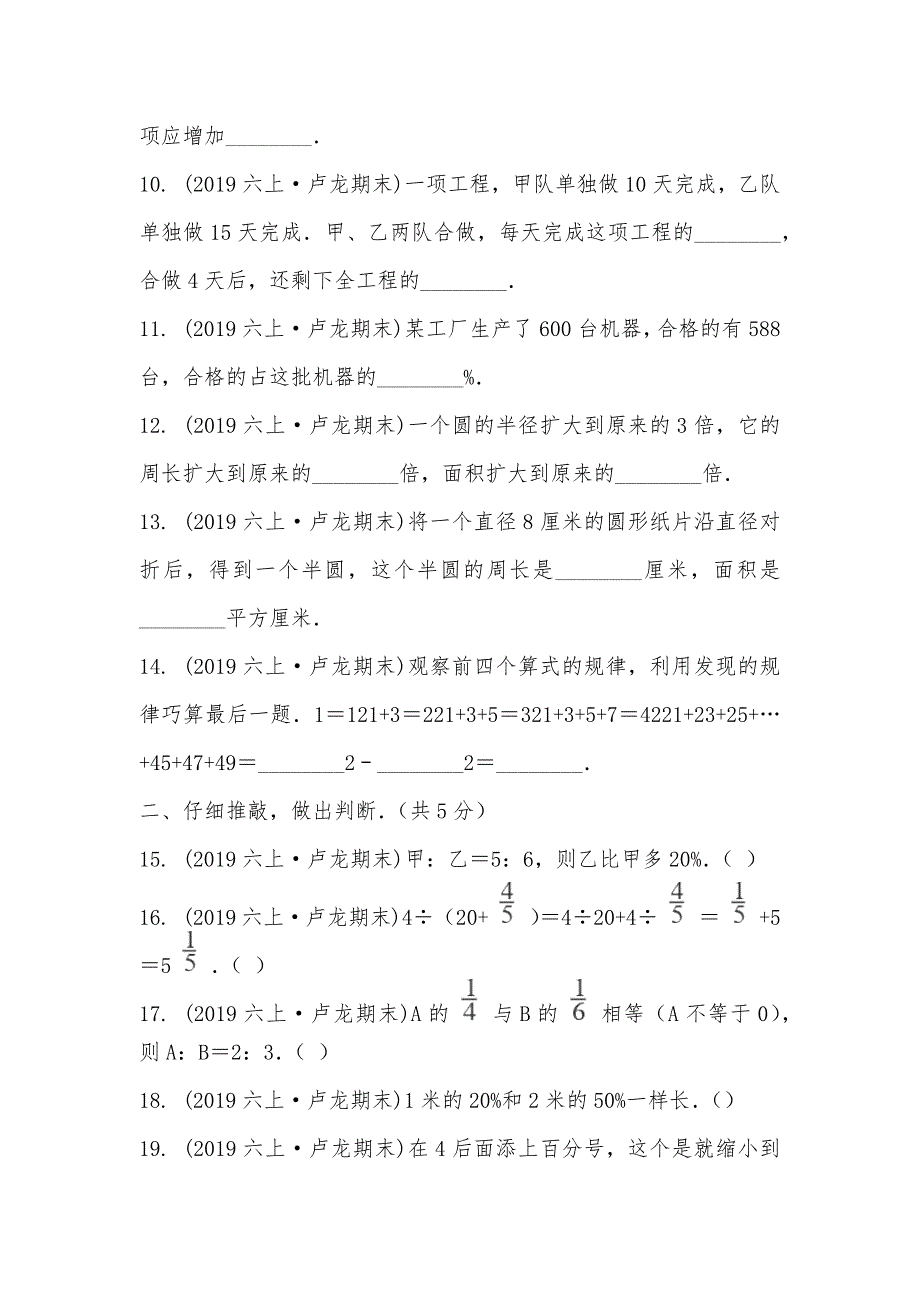 项应增加________．
10. (2019 六上·卢龙期末)一项工程，甲队单独做 10 天完成，乙队
单独做 15 天完成．甲、乙两队合做，每天完成这项工程的________，
合做 4 天后，还剩下全工程的________．
11. (2019 六上·卢龙期末)某工厂生产了 600 台机器，合格的有 588
台，合格的占这批机器的________%．
12. (2019 六上·卢龙期末)一个圆的半径扩大到原来的 3 倍，它的
周长扩大到原来的________倍，面积扩大到原来的________倍．
13. (2019 六上·卢龙期末)将一个直径 8 厘米的圆形纸片沿直径对
折后，得到一个半圆，这个半圆的周长是________厘米，面积是
________平方厘米．
14. (2019 六上·卢龙期末)观察前四个算式的规律，利用发现的规
律巧算最后一题．1＝121+3＝221+3+5＝321+3+5+7＝4221+23+25+…
+45+47+49＝________2﹣________2＝________．
二、仔细推敲，做出判断．（共 5 分）
15. (2019 六上·卢龙期末)甲：乙＝5：6，则乙比甲多 20%．（ ）
16. (2019 六上·卢龙期末)4÷（20+ 4/5 ）＝4÷20+4÷ 4/5 ＝ 1/5 +5
＝5 1/5 ．（ ）
17. (2019 六上·卢龙期末)A 的 1/4 与 B 的 1/6 相等（A 不等于 0），
则 A：B＝2：3．（ ）
18. (2019 六上·卢龙期末)1 米的 20%和 2 米的 50%一样长．（）
19. (2019 六上·卢龙期末)在 4 后面添上百分号，这个是就缩小到